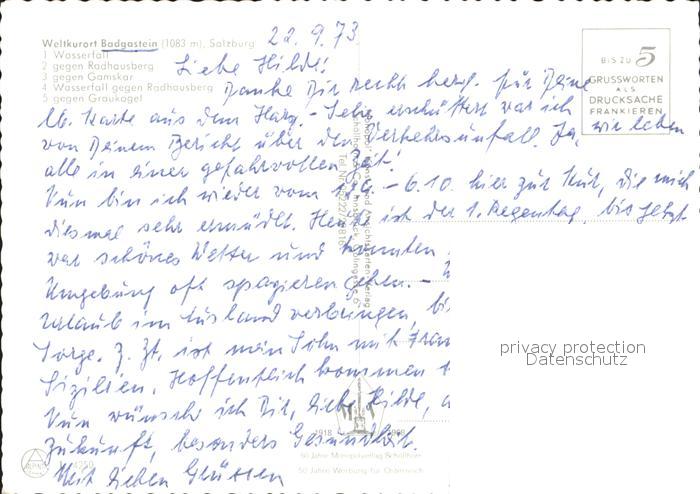 Weltkurort Badgastein (1083 m), Salzburg
1 Wasserfall
2 gegen Radhausberg
3 gegen Gamskar
4 Wasserfall gegen Radhausberg
5 gegen Graukogel
BIS ZU 5
GRUSSWORTEN
ALS
DRUCKSACHE
FRANKIEREN
22.9.73
Liebe Hilde!
Danke Dir recht herzl. für Deine
lb. Karte aus dem Harz. - Sehr erschüttert war ich
von Deinem Bericht über den Verkehrsunfall. Ja, wir leben
alle in einer gefahrvollen Zeit!
Nun bin ich wieder vom - 6.10. hier zur Kur, die mich
diesmal sehr ermüdet. Heute ist der 1. Regentag, bis jetzt
war schönes Wetter und konnten
Umgebung oft spazieren gehen. -
Urlaub im Ausland verbringen, bi
Sorge. Z. Zt. ist mein Sohn mit Frau
Sizilien. Hoffentlich kommen
Nun wünsche ich Dir, liebe Hilde, a
Zukunft, besonders Gesundheit.
Mit lieben Grüssen
privacy protection
Datenschutz
1918
1968
50 Jahre Monopolverlag Schöllhorn
50 Jahre Werbung für Österreich